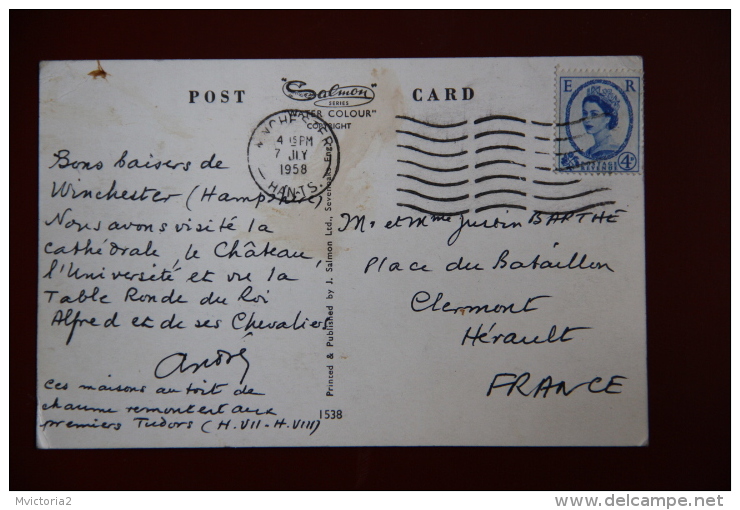 POST
"Salmon
SERIES
WATER COLOUR"
COPYRIGHT
CARD
E R
4D
POSTAGE
REVENUE
WINCHESTER
4 15PM
7 JLY
1958
HANTS.
Bons baisers de
Winchester (Hampshire)
Nous avons visité la
cathédrale, le Château,
l'Université et vu la
Table Ronde du Roi
Alfred et de ses Chevaliers
André
Ces maisons au toit de
chaume remontent aux
premiers Tudors (H.VII-H.VIII)
Printed & Published by J. Salmon Ltd., Sevenoaks, Eng.
1538
Mr et Mme Justin BARTHE
Place du Bataillon
Clermont
Hérault
FRANCE
Mvictoria2
www.delcampe.net